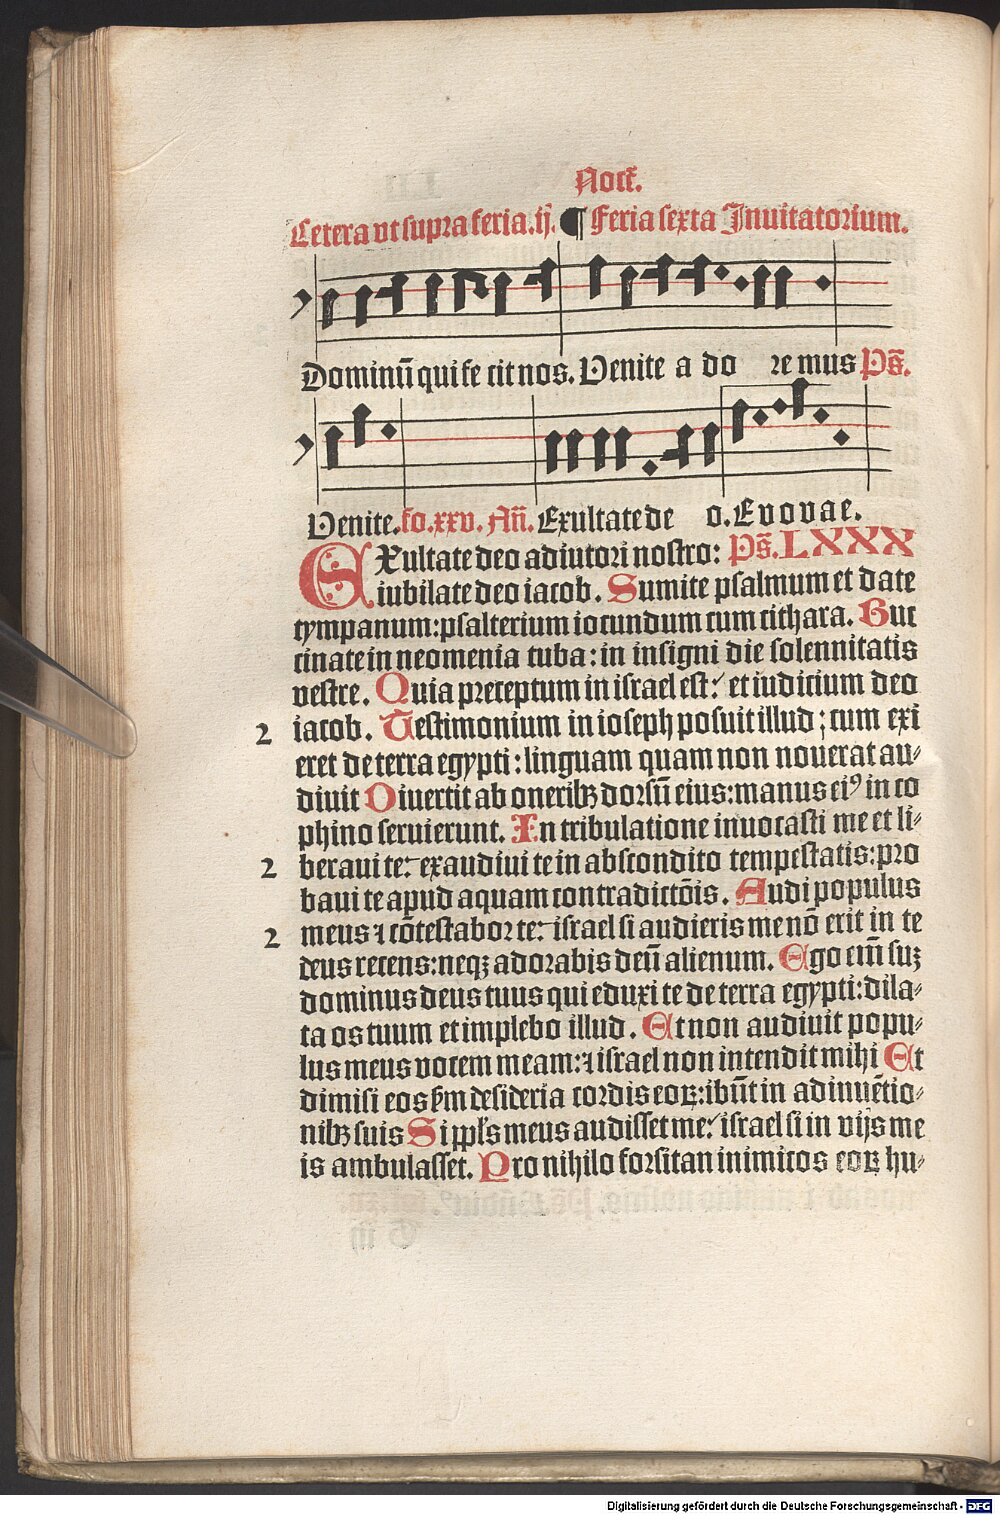 Noct̄.
Cetera vt supra feria.ij. ¶ Feria sexta Inuitatorium.
Dominū qui fe cit nos. Venite a do re mus Ps̄.
Venite. fo.xxv. An̄. Exultate de o. Evovae.
EXultate deo adiutori nostro: Ps̄. LXXX
iubilate deo iacob. Sumite psalmum et date
tympanum: psalterium iocundum cum cithara. Buc
cinate in neomenia tuba: in insigni die solennitatis
vestre. Quia preceptum in israel est: et iudicium deo
2 iacob. Testimonium in ioseph posuit illud; cum exi
eret de terra egypti: linguam quam non nouerat au-
diuit Diuertit ab oneribꝫ dorsū eius: manus eiꝰ in co
phino seruierunt. In tribulatione inuocasti me et li-
2 beraui te: exaudiui te in abscondito tempestatis: pro
baui te apud aquam contradictōis. Audi populus
2 meus ⁊ cōtestabor te: israel si audieris me nō erit in te
deus recens: neqꝫ adorabis deū alienum. Ego em̄ suꝫ
dominus deus tuus qui eduxi te de terra egypti: dila-
ta os tuum et implebo illud. Et non audiuit popu-
lus meus vocem meam: ⁊ israel non intendit mihi Et
dimisi eos ẜm desideria cordis eoꝝ: ibūt in adinuētio-
nibꝫ suis Si ppl̄s meus audisset me: israel si in vijs me
is ambulasset. Pro nihilo forsitan inimicos eoꝝ hu-
Digitalisierung gefördert durch die Deutsche Forschungsgemeinschaft - DFG